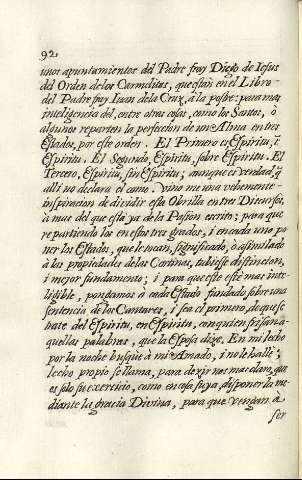 92
unos apuntamientos del Padre fray Diego de Iesus
del Orden de los Carmelitas, que estàn en el Libro
del Padre fray Iuan de la Cruz, à la postre: para mas
inteligencia del, entre otras cosas, como los Santos, ò
algunos reparten la perfeccion de un Alma entres
Estados, por este orden. El Primero es Espiritu, i
Espiritu. El Segundo, Espiritu, sobre Espiritu. El
Tercero, Espiritu, sin Espiritu; aunque es verdad, q̃
alli no declara el como. Vino me una vehemente
inspiracion de dividir esta Obrilla entres Discursos,
à mas del que està ya de la Passion escrito; para que
repartiendo los en estos tres grados, i en cada uno po
ner los Estados, que le tocan, significado, ò asimilado
à las propiedades de las Cortinas, tubiesse distincion,
i mejor fundamento; i para que este estè mas inte
ligible, pongamos à cada Estado fundado sobre una
sentencia de los Cantares, i sea el primero, de que se
trate del Espiritu, en Espiritu, con quien frisan a-
quellas palabras, que la Esposa dize. En mi lecho
por la noche busquè à mi Amado, i no le hallè;
lecho propio se llama, para dezir nos mas claro, que
es solo su exercicio, como en casa suya, disponer la me
diante la gracia Divina, para que vengan à
ser